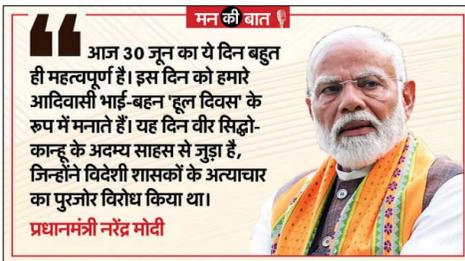 मन की बात
आज 30 जून का ये दिन बहुत
ही महत्वपूर्ण है। इस दिन को हमारे
आदिवासी भाई-बहन 'हूल दिवस' के
रूप में मनाते हैं। यह दिन वीर सिद्धो-
कान्हू के अदम्य साहस से जुड़ा है,
जिन्होंने विदेशी शासकों के अत्याचार
का पुरजोर विरोध किया था।
प्रधानमंत्री नरेंद्र मोदी